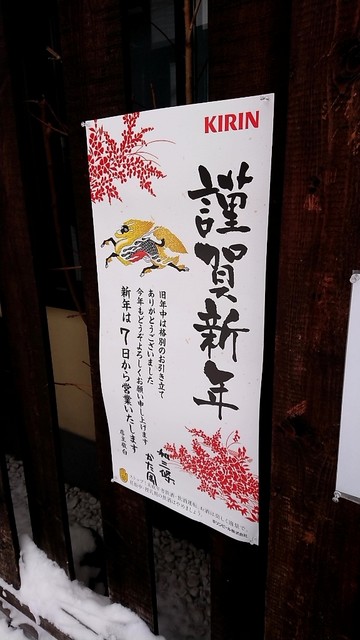 KIRIN
謹賀新年
旧年中は格別のお引き立て
ありがとうございました
今年もどうぞよろしくお願い申し上げます
新年は7日から営業いたします
店主敬白
キリンビール株式会社